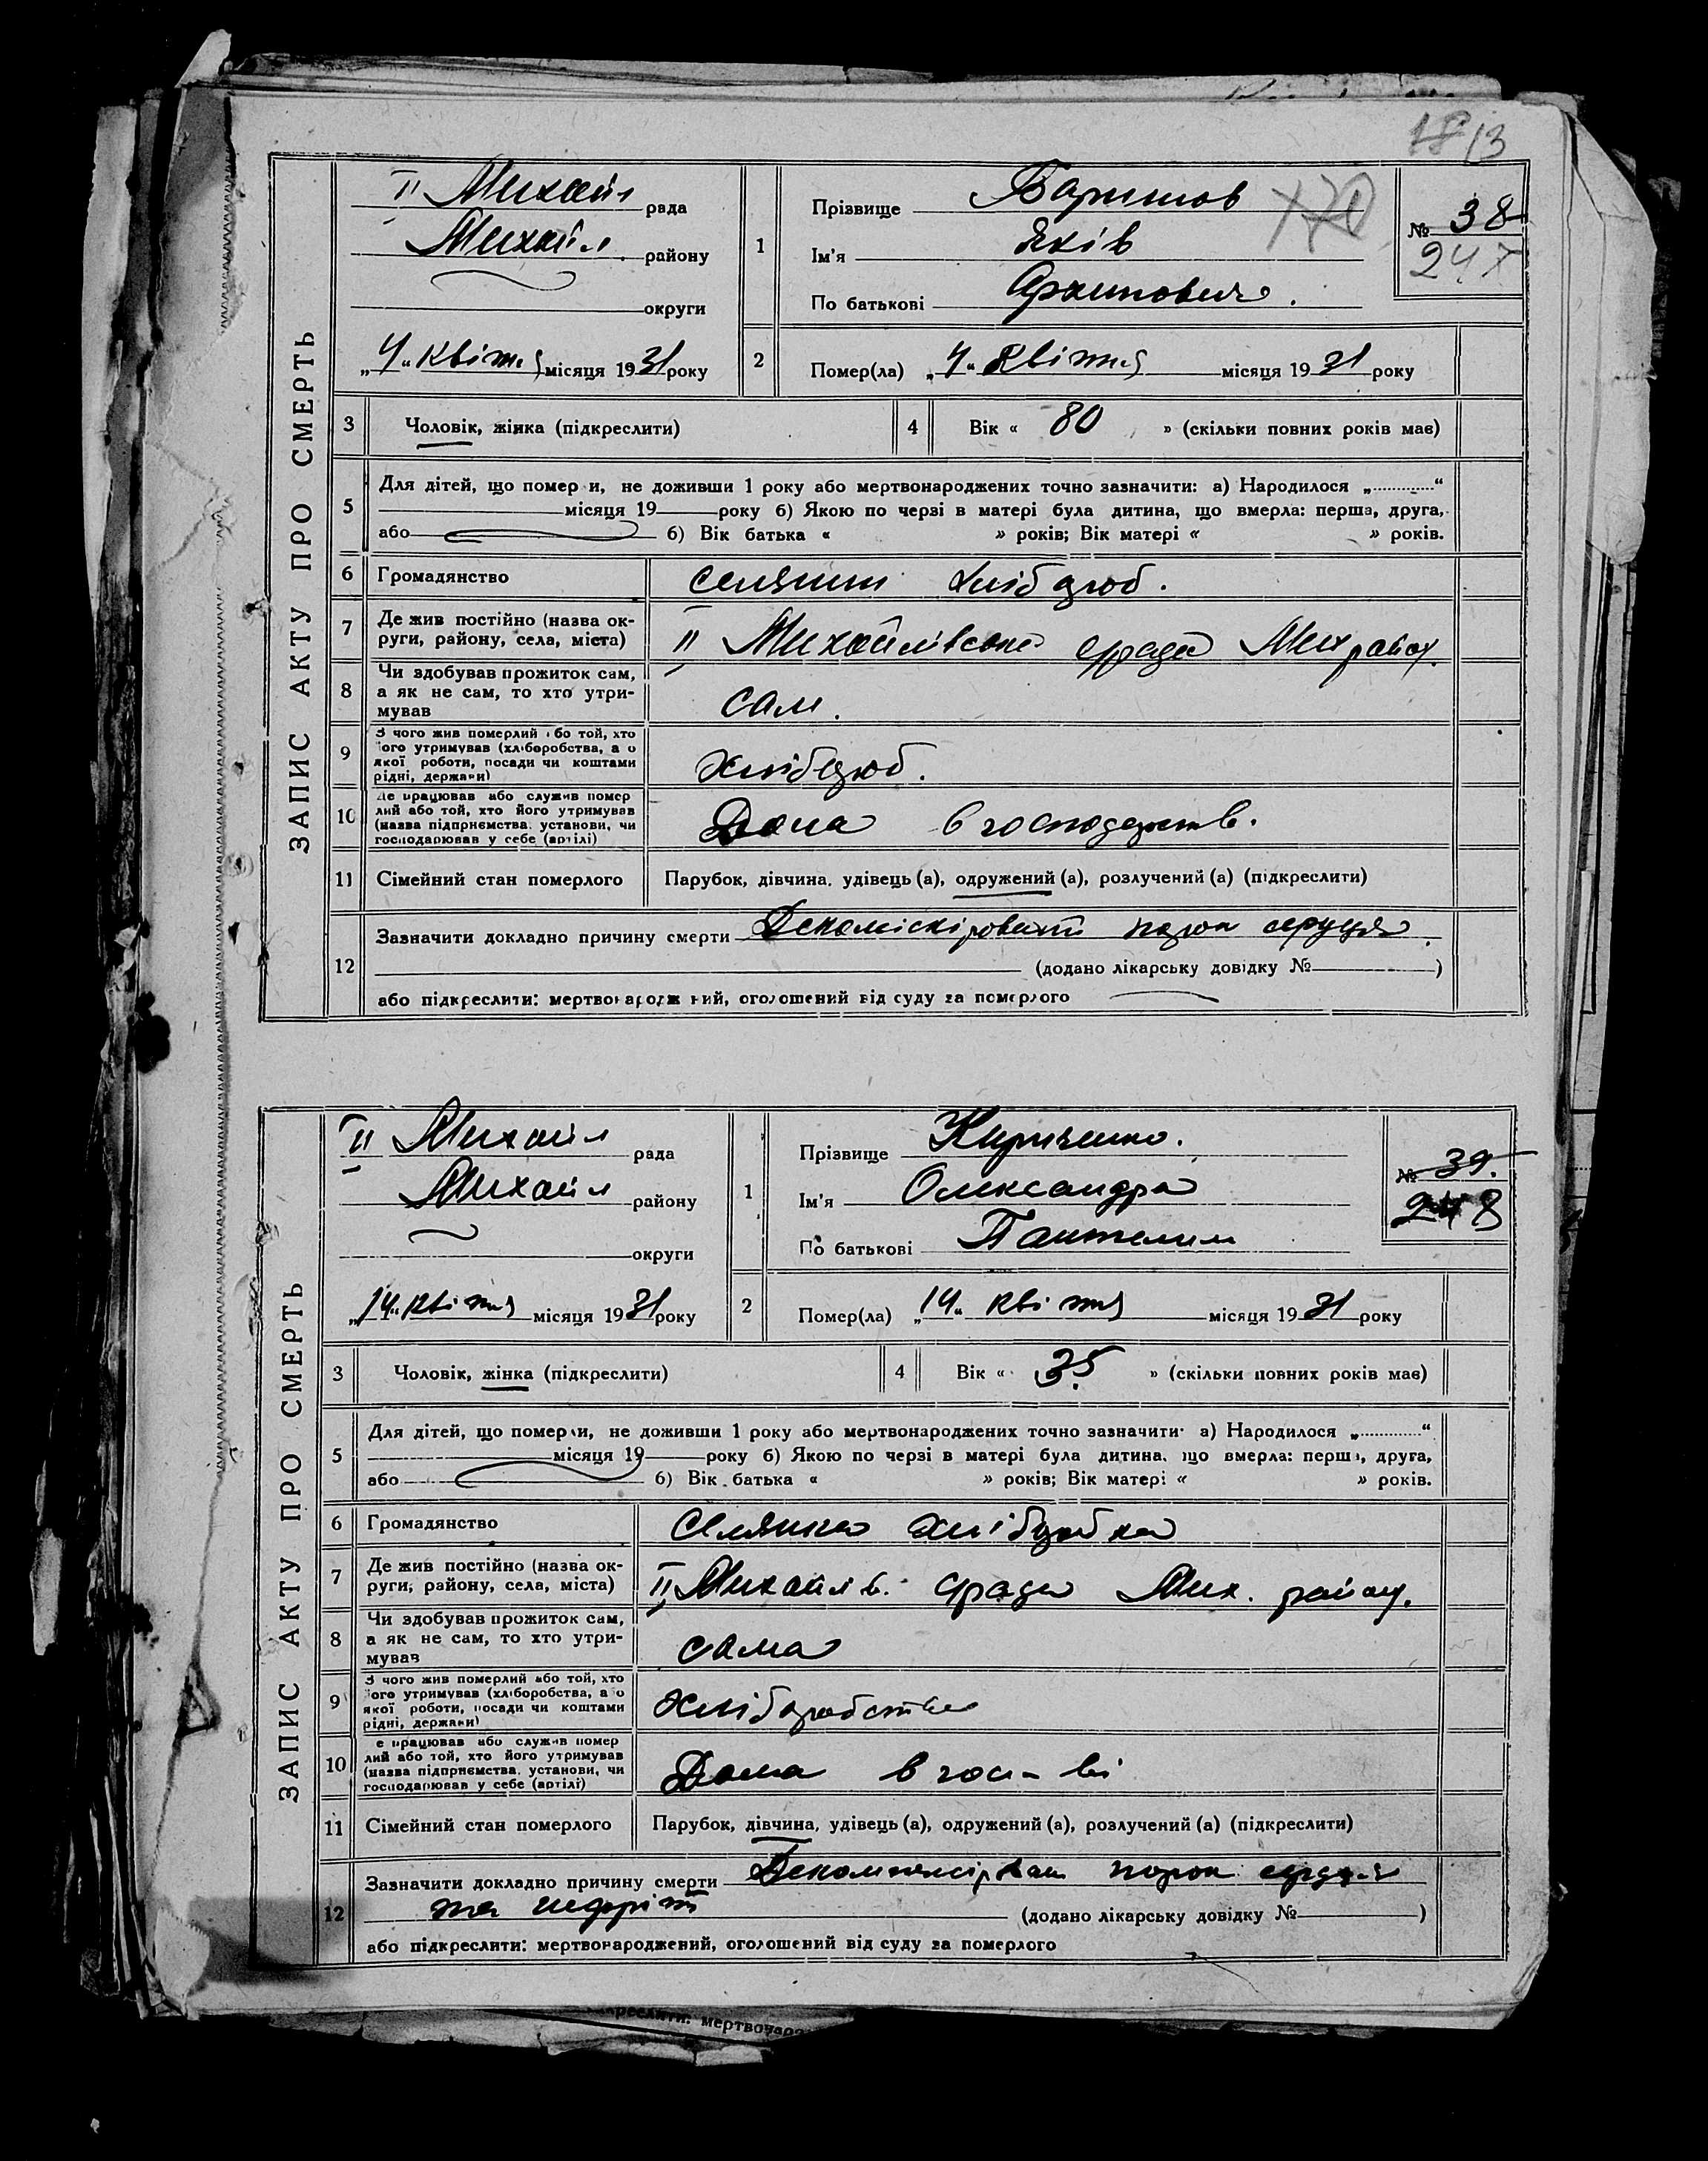 13
ЗАПИС АКТУ ПРО СМЕРТЬ
II Михайл рада
Михайл. району
округи
„4“ квітня місяця 1931 року
1
Прізвище
Ім'я Яків
По батькові Архипович.
№ 38
247
2
Помер(ла) „4“ квітня місяця 1931 року
3 Чоловік, жінка (підкреслити)
4 Вік « 80 » (скільки повних років має)
5 Для дітей, що померли, не доживши 1 року або мертвонароджених точно зазначити: а) Народилося „............“
місяця 19 року б) Якою по черзі в матері була дитина, що вмерла: перша, друга,
або б) Вік батька « » років; Вік матері « » років.
6 Громадянство селянин хлібороб.
7 Де жив постійно (назва ок-
руги, району, села, міста) II Михайлівської с/рада Мих району.
8 Чи здобував прожиток сам,
а як не сам, то хто утри-
мував сам.
9 З чого жив померлий або той, хто
його утримував (хліборобства, а о
якої роботи, посади чи коштами
рідні, держави) хлібороб.
10 Де працював або служив помер
лий або той, хто його утримував
(назва підприємства, установи, чи
господарював у себе (артілі) Дома в господарств.
11 Сімейний стан померлого Парубок, дівчина, удівець (а), одружений (а), розлучений (а) (підкреслити)
12 Зазначити докладно причину смерти порок серця.
(додано лікарську довідку № )
або підкреслити: мертвонароджений, оголошений від суду за померлого
ЗАПИС АКТУ ПРО СМЕРТЬ
II Михайл рада
Михайл району
округи
„14“ квітня місяця 1931 року
1
Прізвище Кириченко.
Ім'я Олександра
По батькові Пантелим
№ 39.
248
2
Помер(ла) „14“ квітня місяця 1931 року
3 Чоловік, жінка (підкреслити)
4 Вік « 35 » (скільки повних років має)
5 Для дітей, що померли, не доживши 1 року або мертвонароджених точно зазначити: а) Народилося „............“
місяця 19 року б) Якою по черзі в матері була дитина, що вмерла: перша, друга,
або б) Вік батька « » років; Вік матері « » років.
6 Громадянство селянка хліборобка
7 Де жив постійно (назва ок-
руги, району, села, міста) II Михайлів. с/рада Мих. району.
8 Чи здобував прожиток сам,
а як не сам, то хто утри-
мував сама
9 З чого жив померлий або той, хто
його утримував (хліборобства, а о
якої роботи, посади чи коштами
рідні, держави) хліборобства
10 е працював або служив помер
лий або той, хто його утримував
(назва підприємства, установи, чи
господарював у себе (артілі) Дома в гос-ві
11 Сімейний стан померлого Парубок, дівчина, удівець (а), одружений (а), розлучений (а) (підкреслити)
12 Зазначити докладно причину смерти порок серця
та
(додано лікарську довідку № )
або підкреслити: мертвонароджений, оголошений від суду за померлого